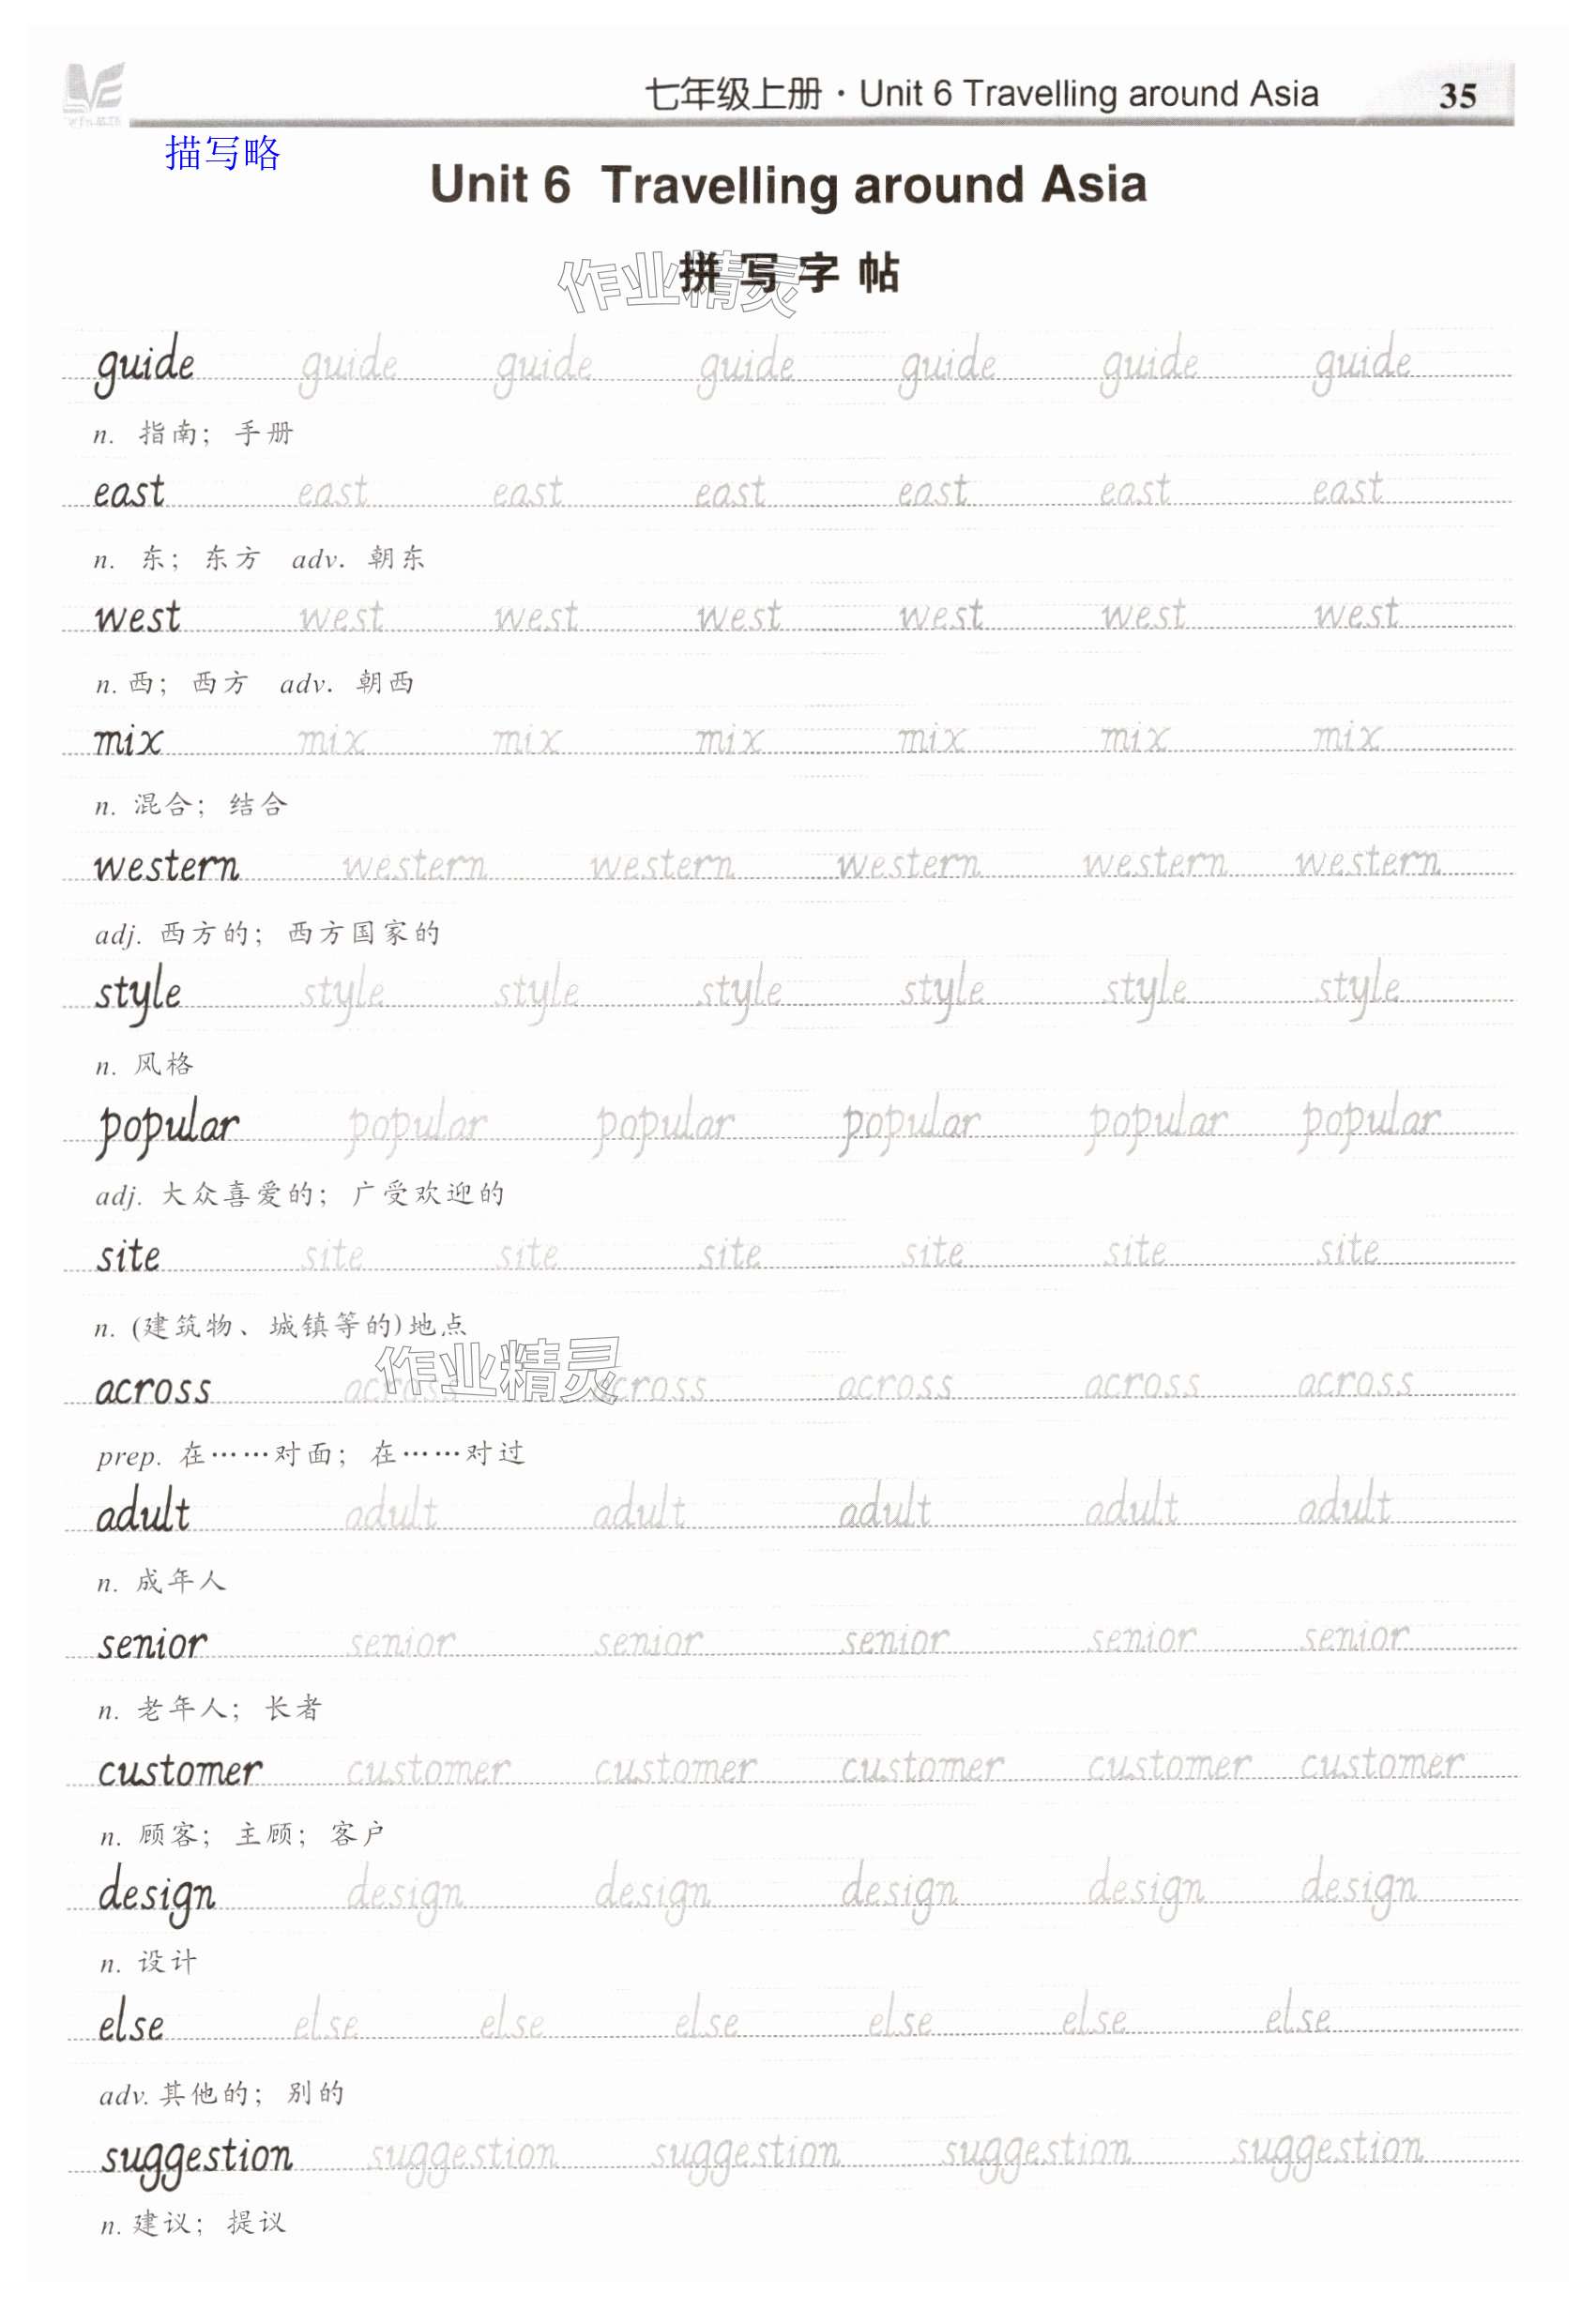 七年级上册·Unit 6 Travelling around Asia 35
描写略
Unit 6 Travelling around Asia
拼写字帖
作业精灵
guide guide guide guide guide guide guide
n. 指南；手册
east east east east east east east
n. 东；东方 adv. 朝东
west west west west west west west
n. 西；西方 adv. 朝西
mix mix mix mix mix mix mix
n. 混合；结合
western western western western western western
adj. 西方的；西方国家的
style style style style style style style
n. 风格
popular popular popular popular popular popular
adj. 大众喜爱的；广受欢迎的
site site site site site site site
n. (建筑物、城镇等的)地点
作业精灵
across across across across across across
prep. 在……对面；在……对过
adult adult adult adult adult adult
n. 成年人
senior senior senior senior senior senior
n. 老年人；长者
customer customer customer customer customer customer
n. 顾客；主顾；客户
design design design design design design
n. 设计
else else else else else else else
adv. 其他的；别的
suggestion suggestion suggestion suggestion suggestion
n. 建议；提议